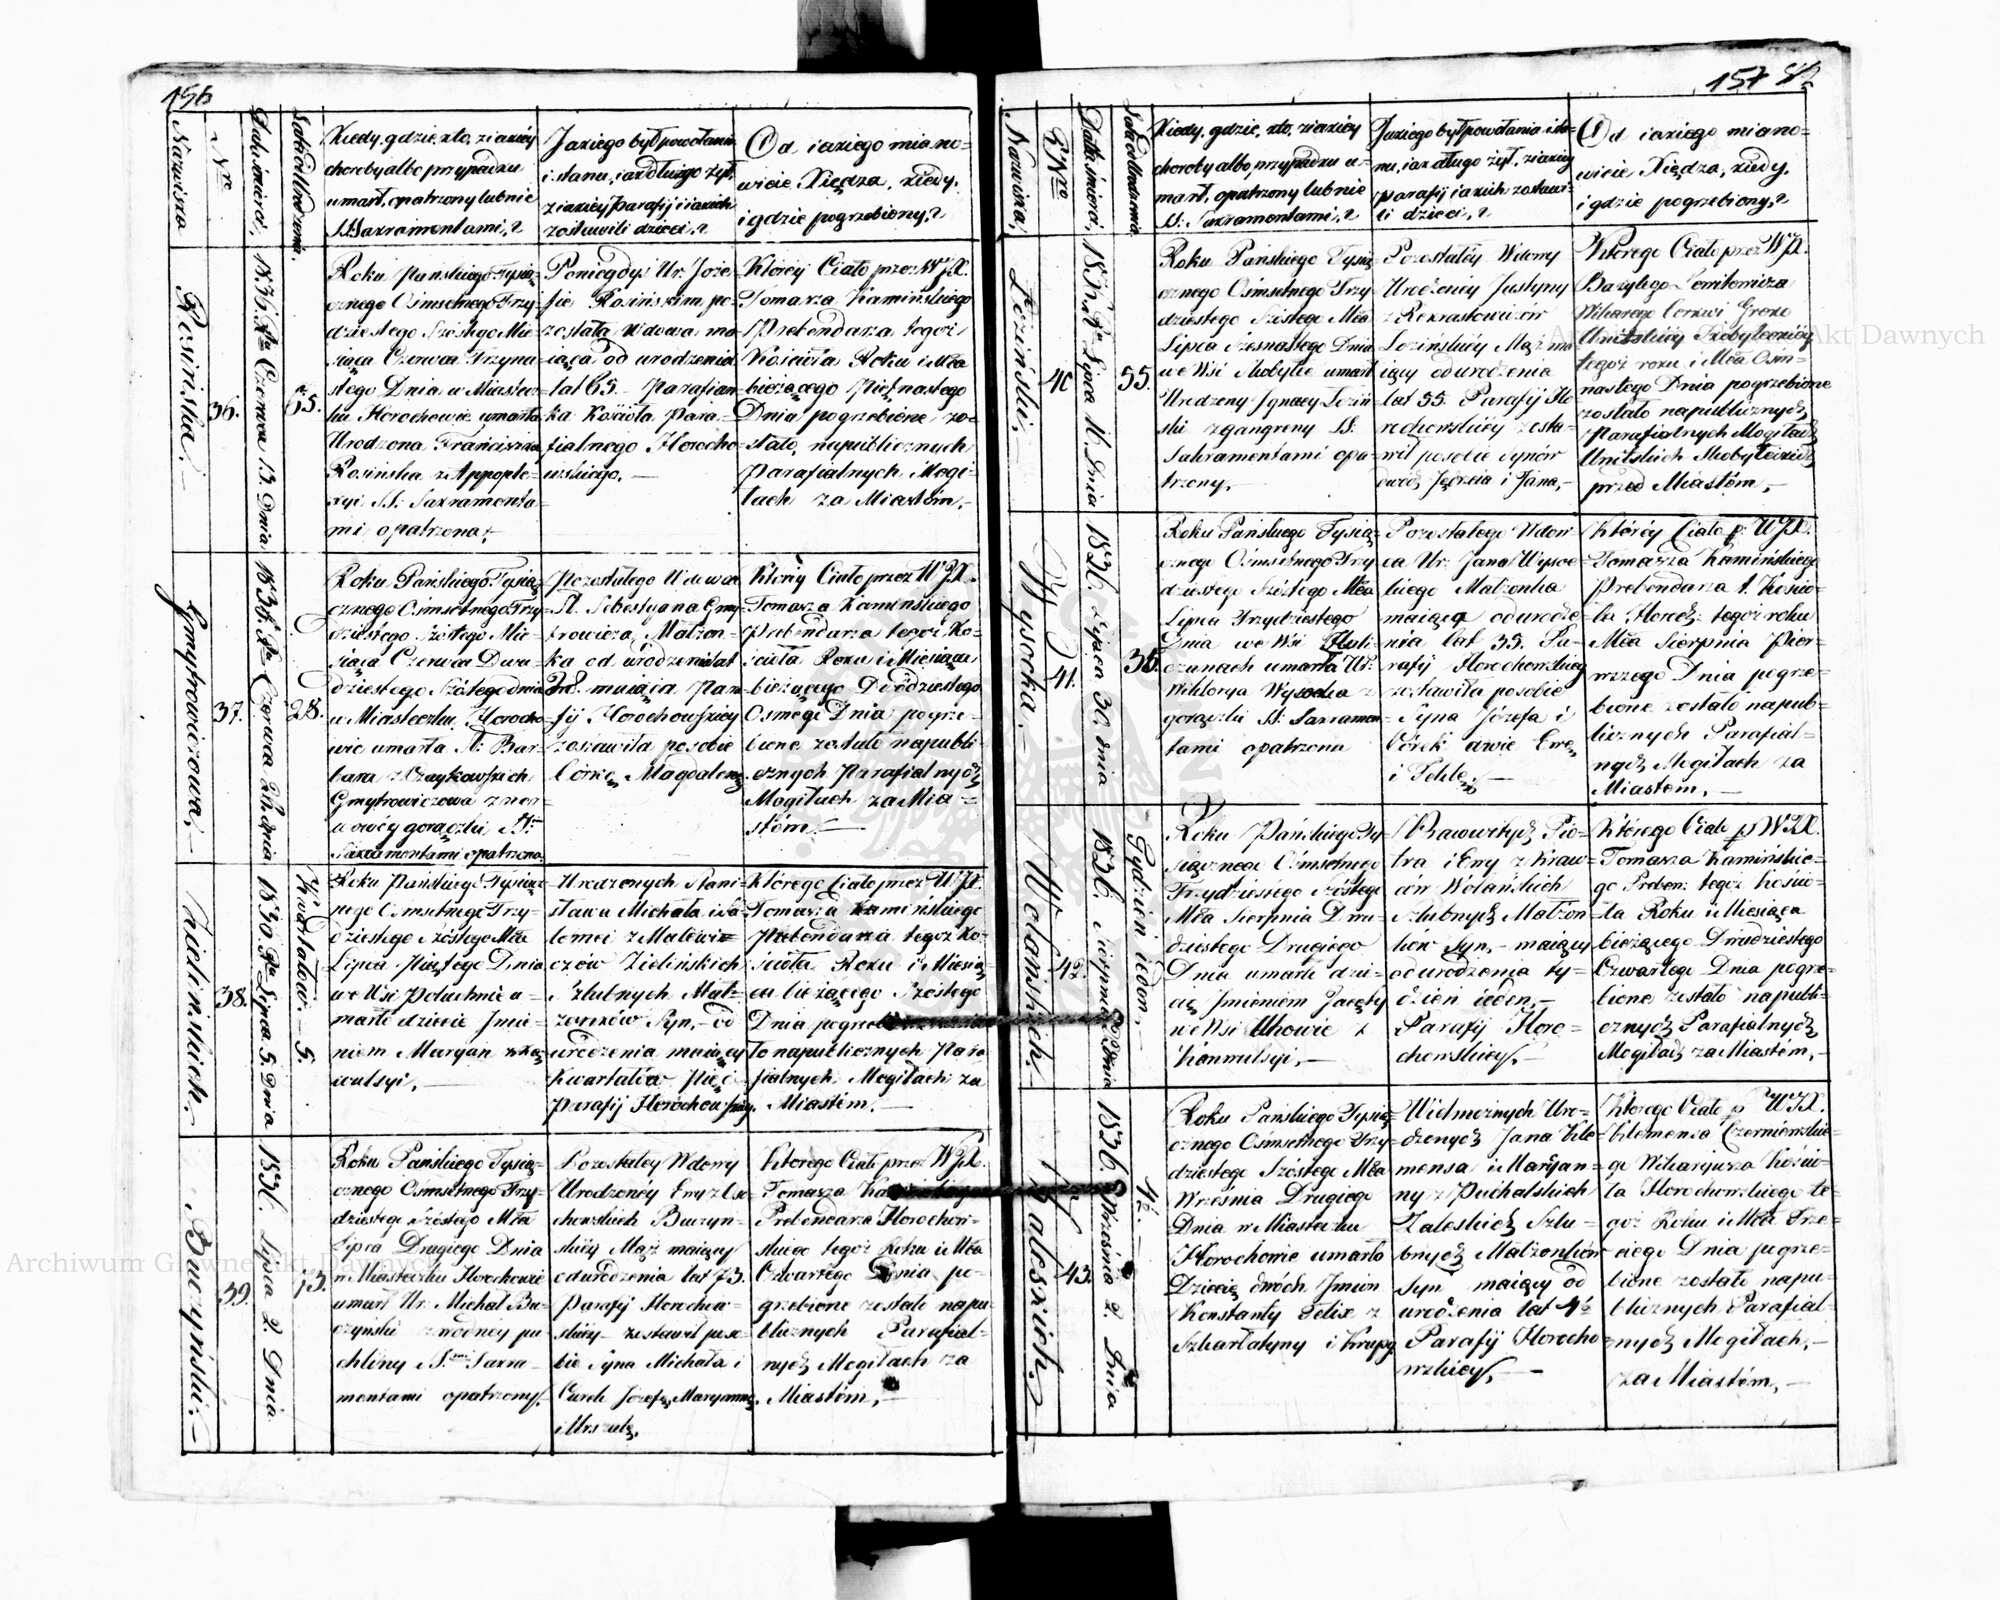 156
Nazwiska
Nro
Data śmierci,
Lata od Urodzenia.
Kiedy, gdzie, kto, z iakiey
choroby albo przypadku
umarł, opatrzony lub nie
SS. Sakramentami,?
Jakiego był powołania
i stanu, iak długo żył,
z iakiey Parafij i iakich
zostawił dzieci,?
Od iakiego miano=
wicie Xiędza, kiedy,
i gdzie pogrzebiony,?
Rosińska.
36.
1836. Rku Czerwca 13. Dnia
65.
Roku Pańskiego Tysią=
cznego Ośmsetnego Trzy=
dziestego Szóstego Mie=
siąca Czerwca Trzyna=
stego Dnia w Miastecz=
ku Horochowie umarła
Urodzona Franciszka
Rosińska z Appople=
xyi SS. Sakramenta=
mi opatrzona,
Poniegdyś Ur. Joze=
fie Rosińskim po=
zostałą Wdowa ma=
iąca od urodzenia
lat 65. Parafian=
ka Kościoła Para=
fialnego Horocho=
wskiego. —
Którey Ciało przez WJX.
Tomasza Kamińskiego
Prebendarza tegoż
Kościoła Roku i Mca
bieżącego Piętnastego
Dnia pogrzebione zo=
stało, na publicznych
Parafialnych Mogi=
łach za Miastem,—
Gmytrowiczowa.
37.
1836. Rku Czerwca 26. dnia
28.
Roku Pańskiego Tysią
cznego Ośmsetnego Trzy=
dziestego Szóstego Mie=
siąca Czerwca Dwu=
dziestego Szóstego dnia
w Miasteczku Horocho=
wie umarła S. Bar
bara z Czaykowskich
Gmytrowiczowa z ner=
wowéy gorączki SS.
Sakramentami opatrzona
Pozostałego Wdowca
S. Sebestyana Gmy=
trowicza, Małżon=
ka od urodzenia lat
28. maiąca Para
fij Horochowskiey
zostawiła posobie
Córkę, Magdalenę
Któréy Ciało przez WJX.
Tomasza Kamińskiego
Prebendarza tegoż Ko=
ścioła Roku i Miesiąca
bieżącego Dwódziestego
Osmego Dnia pogrze=
bione zostało na publi=
cznych Parafialnych
Mogiłach za Mia=
stém.—
Zielińskich.
38.
1836 Rku Lipca 5. Dnia
Kwartałów. — 5.
Roku Pańskiego Tysiącz
nego Ośmsetnego Trzy=
dziestego Szóstego Mca
Lipca Piątego Dnia
we Wsi Połuchnie u=
marło dziecie Imie=
niem Maryan z kon
wulsyi,—
Urodzonych Stani=
sława Michała i Sa
lomei z Malewi=
czów Zielińskich
Szlubnych Mał=
żonków Syn,— od
urodzenia maiący
kwartałów pięć
Parafij Horochowskiey.
Którego Ciało przez WJX.
Tomasza Kamińskiego
Prebendarza tegoż Ko=
ścioła Roku i Miesią
ca bieżącego Szóstego
Dnia pogrzebione zosta
ło na publicznych Para
fialnych Mogiłach za
Miastém.—
Buczyński.—
39.
1836. Lipca 2. Dnia
73.
Roku Pańskiego Tysią=
cznego Ośmsetnego Trzy=
dziestego Szóstego Mca
Lipca Drugiego Dnia
w Miasteczku Horochowie
umarł Ur. Michał Bu
czyński z wodnéy pu
chliny S. Sakra=
mentami opatrzony,
Pozostałey Wdowy
Urodzonéy Ewy z
chowskich Buczyń=
skiéy Mąż maiący
od urodzenia lat 73.
Parafij Horochow=
skiéy— zostawił poso=
bie Syna Michała i
Curek Józefę, Maryannę,
i Urszulę.
Którego Ciało przez WJX.
Tomasza Kamińskiego
Prebendarza Horochow=
skiego tegoż Roku i Mca
Czwartego Dnia po=
grzebione zostało na pu=
blicznych Parafial=
nych Mogiłach za
Miastém,—
157
Nazwiska,
Nro
Data śmierci,
Lata od Urodzenia
Kiedy, gdzie, kto, z iakiéy
choroby albo przypadku u=
marł, opatrzony lub nie
SS. Sakramentami,?
Jakiego był powołania i sta=
nu, iak długo żył, z iakiéy
Parafij i iakich zostawi=
ł dzieci,?
Od iakiego miano=
wicie Xiędza, kiedy,
i gdzie pogrzebiony,?
Łoziński,—
40
1836. Rku Lipca 16. Dnia
55.
Roku Pańskiego Tysią
cznego Ośmsetnego Trzy
dziestego Szóstego Mca
Lipca Szesnastego Dnia
we Wsi Skobyłce umarł
Urodzony Jgnacy Łoziń
ski z gangreny SS.
Sakramentami opa=
trzony,—
Pozostałéy Wdowy
Urodzonéy Justyny
z Rekrastowiczów
Łozińskiéy Mąż ma
iący od urodzenia
lat 55. Parafij Ho
rochowskiéy zosta=
wił posobie synów
dwóch Jędrzeia i Jana,—
Którego Ciało przez WJX.
Bazylego
Wikarego Cerkwi Greko
Unitskiéy Skobyłeckiéy
tegoż roku i Mca Osm=
nastego Dnia pogrzebione
zostało na publicznych
Parafialnych Mogiłach
Unitskich Skobyłeckich
przed Miastém,—
Wysocka.—
41.
1836. Lipca 30. dnia
35.
Roku Pańskiego Tysią=
cznego Ośmsetnego Trzy
dziestego Szóstego Mca
Lipca Trzydziestego
Dnia we Wsi Holi=
czanach umarła Ur.
Wiktorya Wysocka z
gorączki SS. Sakramen=
tami opatrzona
Pozostałego Wdow
ca Ur. Jana Wysoc
kiego Małżonka
maiąca od urodze
nia lat 35. Pa=
rafij Horochowskiéy
zostawiła posobie
Syna Józefa i
Córek dwie Ewę,
i Teklę,—
Któréy Ciało p. WJX.
Tomasza Kamińskiego
Prebendarza t. Kościo=
ła Horoch: tegoż roku
Mca Sierpnia Pier=
wszego Dnia pogrze=
bione zostało na pub=
licznych Parafial=
nych Mogiłach za
Miastem,—
Wolańskich.
42.
1836. Sierpnia 22 Dnia
Tydzień ieden,—
Roku Pańskiego Ty=
siącznego Ośmsetnego
Trzydziestego Szóstego
Mca Sierpnia Dwu=
dziestego Drugiego
Dnia umarło dzie=
cię Jmieniem Jacęty
we Wsi Uhowie z
Konwulsyi,—
Pracowitych Pio=
tra i Ewy z Kraw=
ców Wolańskich
Szlubnych Małżon=
ków Syn,— maiący
od urodzenia ty=
dzień ieden,—
Parafij Horo=
chowskiéy,—
Którego Ciało p. WJX.
Tomasza Kamińskie=
go Preben: tegoż Kościo=
ła Roku i Miesiąca
bieżącego Dwudziestego
Czwartego Dnia pogrze=
bione zostało na publi=
cznych Parafialnych
Mogiłach za Miastém,—
Zaleskich.
43.
1836. Września 2. Dnia
4½.—
Roku Pańskiego Tysią
cznego Ośmsetnego Trzy=
dziestego Szóstego Mca
Września Drugiego
Dnia w Miasteczku
Horochowie umarło
Dziecię dwóch Jmion
Konstanty Felix z
Szkarlatyny i Krupy
Wielmożnych Uro=
dzonych Jana Kle=
mensa i Maryan=
ny z Puchalskich
Zaleskich Szlu=
bnych Małżonków
Syn maiący od
urodzenia lat 4½
Parafij Horocho
wskiéy,—
Którego Ciało p. WJX.
Klemensa Czerniewskie=
go Wikaryusza Kościo=
ła Horochowskiego te=
goż Roku i Mca Trze=
ciego Dnia pogrze=
bione zostało na pu=
blicznych Parafial=
nych Mogiłach,—
za Miastém,—
Archiwum Główne Akt Dawnych